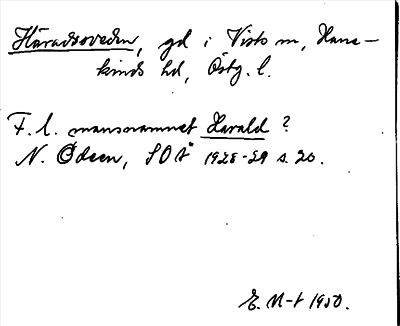 Häradssveden, gd i Vists sn, Hane-
kinds hd, Östg. l.
F. l. mansnamnet Harald ?
N. Ödeen, SOÅ 1928-29 s. 20.
E. N-t 1950.